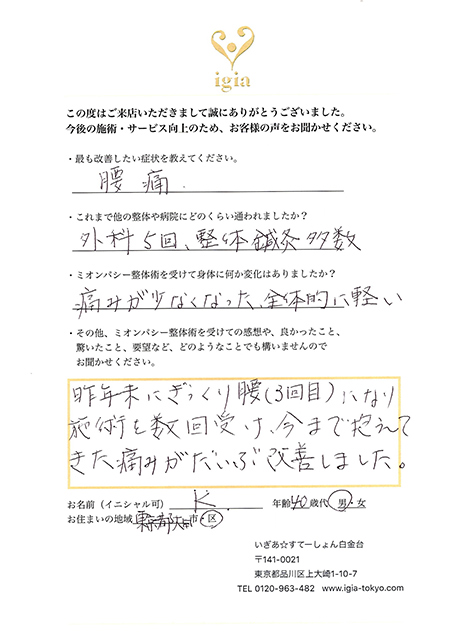 igia
この度はご来店いただきまして誠にありがとうございました。
今後の施術・サービス向上のため、お客様の声をお聞かせください。
・最も改善したい症状を教えてください。
腰痛.
・これまで他の整体や病院にどのくらい通われましたか？
外科5回、整体鍼灸多数
・ミオンパシー整体術を受けて身体に何か変化はありましたか？
痛みが少なくなった、全体的に軽い
・その他、ミオンパシー整体術を受けての感想や、良かったこと、
驚いたこと、要望など、どのようなことでも構いませんので
お聞かせください。
昨年末にぎっくり腰(3回目)になり
施術を数回受け、今まで抱えて
きた痛みがだいぶ改善しました。
お名前（イニシャル可） K. 年齢40歳代 男・女
お住まいの地域 東京都 市・区
いぎあ☆すてーしょん白金台
〒141-0021
東京都品川区上大崎1-10-7
TEL 0120-963-482 www.igia-tokyo.com